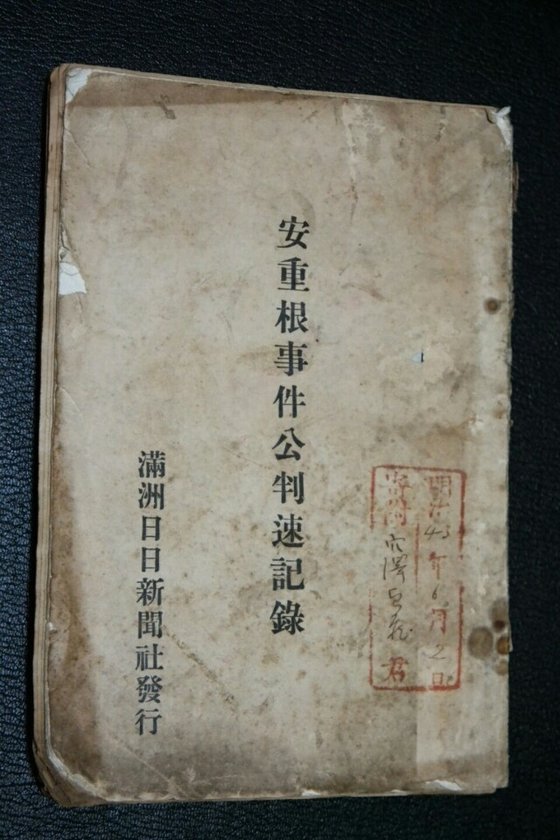 明治43年6月2日
君
安重根事件公判速記錄
滿洲日日新聞社發行